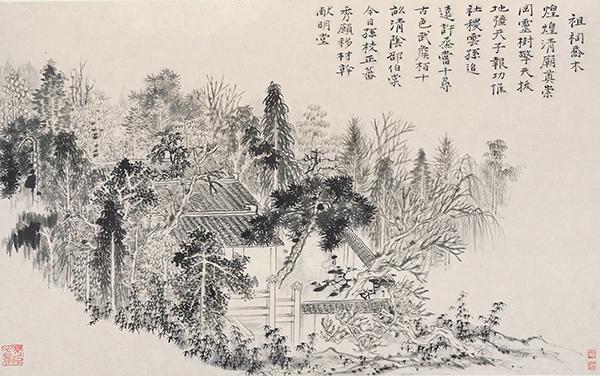 祖祠喬木
煌煌清廟奠崇
岡靈樹擎天拔
地彊天子報功惟
社稷雲孫追
遠許烝嘗千尋
古色武侯栢十
畝清陰邵伯棠
今日孫枝正蕃
秀願移材幹
献明堂